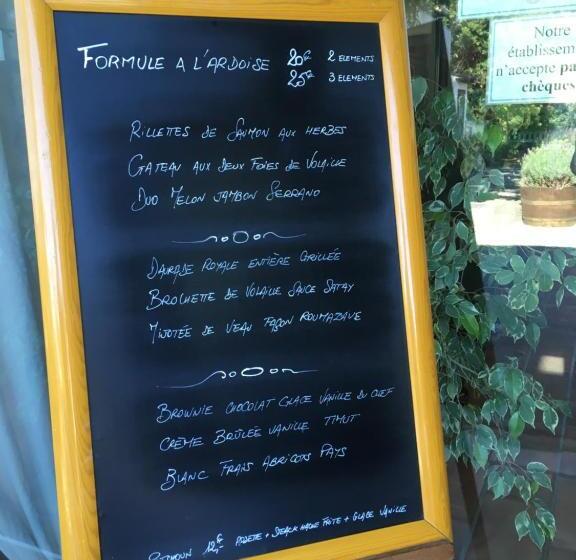 FORMULE A L'ARDOISE 20€ 2 ELEMENTS
25€ 3 ELEMENTS
RILLETTES DE SAUMON AUX HERBES
GATEAU AUX DEUX FOIES DE VOLAILLE
DUO MELON JAMBON SERRANO
DAURADE ROYALE ENTIÈRE GRILLÉE
BROCHETTE DE VOLAILLE SAUCE SATAY
MIJOTÉE DE VEAU FAÇON ROUMAZAVE
BROWNIE CHOCOLAT GLACE VANILLE DU CHEF
CRÈME BRÛLÉE VANILLE TIMUT
BLANC FRAIS ABRICOTS PAYS
12€ + STEACK HACHE FRITE + GLACE VANILLE
Notre
établissem
n'accepte pa
chèques